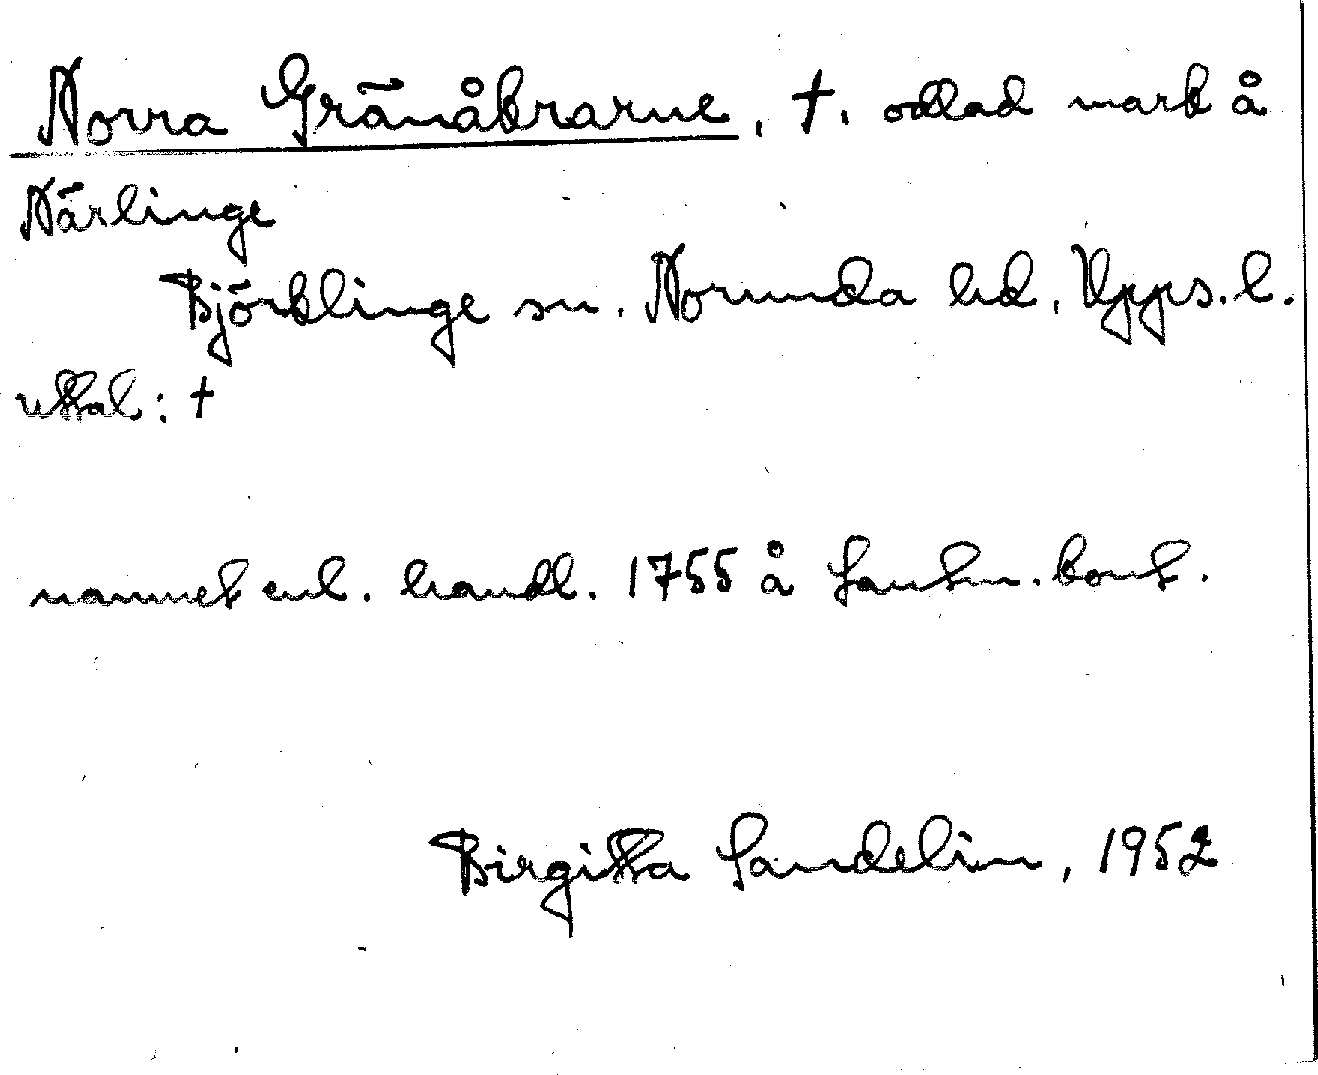 Norra Gränåkrarne, †. odlad mark å
Närlinge
Björklinge sn. Norunda hd, Upps.l.
uttal: †
namnet enl. handl. 1755 å Lantm.kont.
Birgitta Sandelin, 1952